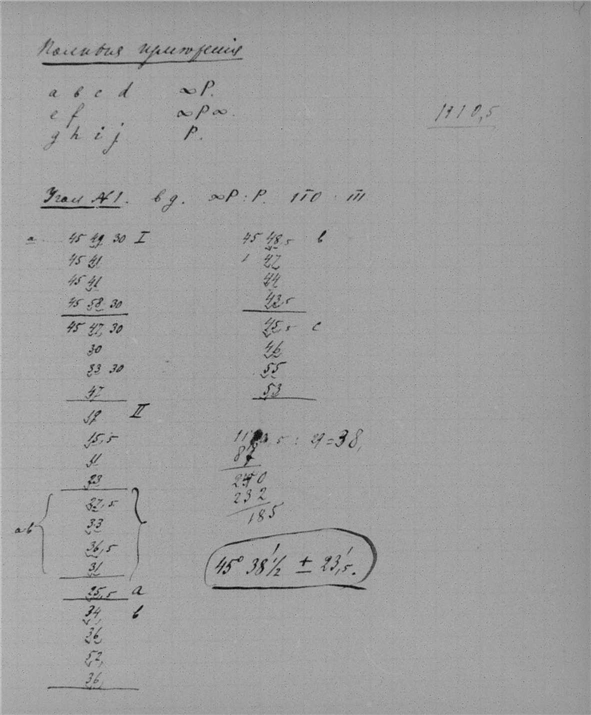 a b c d ∞P.
e f ∞P∞.
g h i j P.
1110,5
Угол №1. ∞P : P. 110 : 111
a 45 49 30 I
45 41
45 41
45 58 30
45 47 30
30
33 30
47
17 II
15,5
31
23
37,5
ab 33
36,5
31
35,5 a
34 b
36
52
36
45 48,5 b
47
44
43,5
45,5 c
46
55
53
: 29=38,
87
240
232
185
45° 38'½ ± 23,'5.